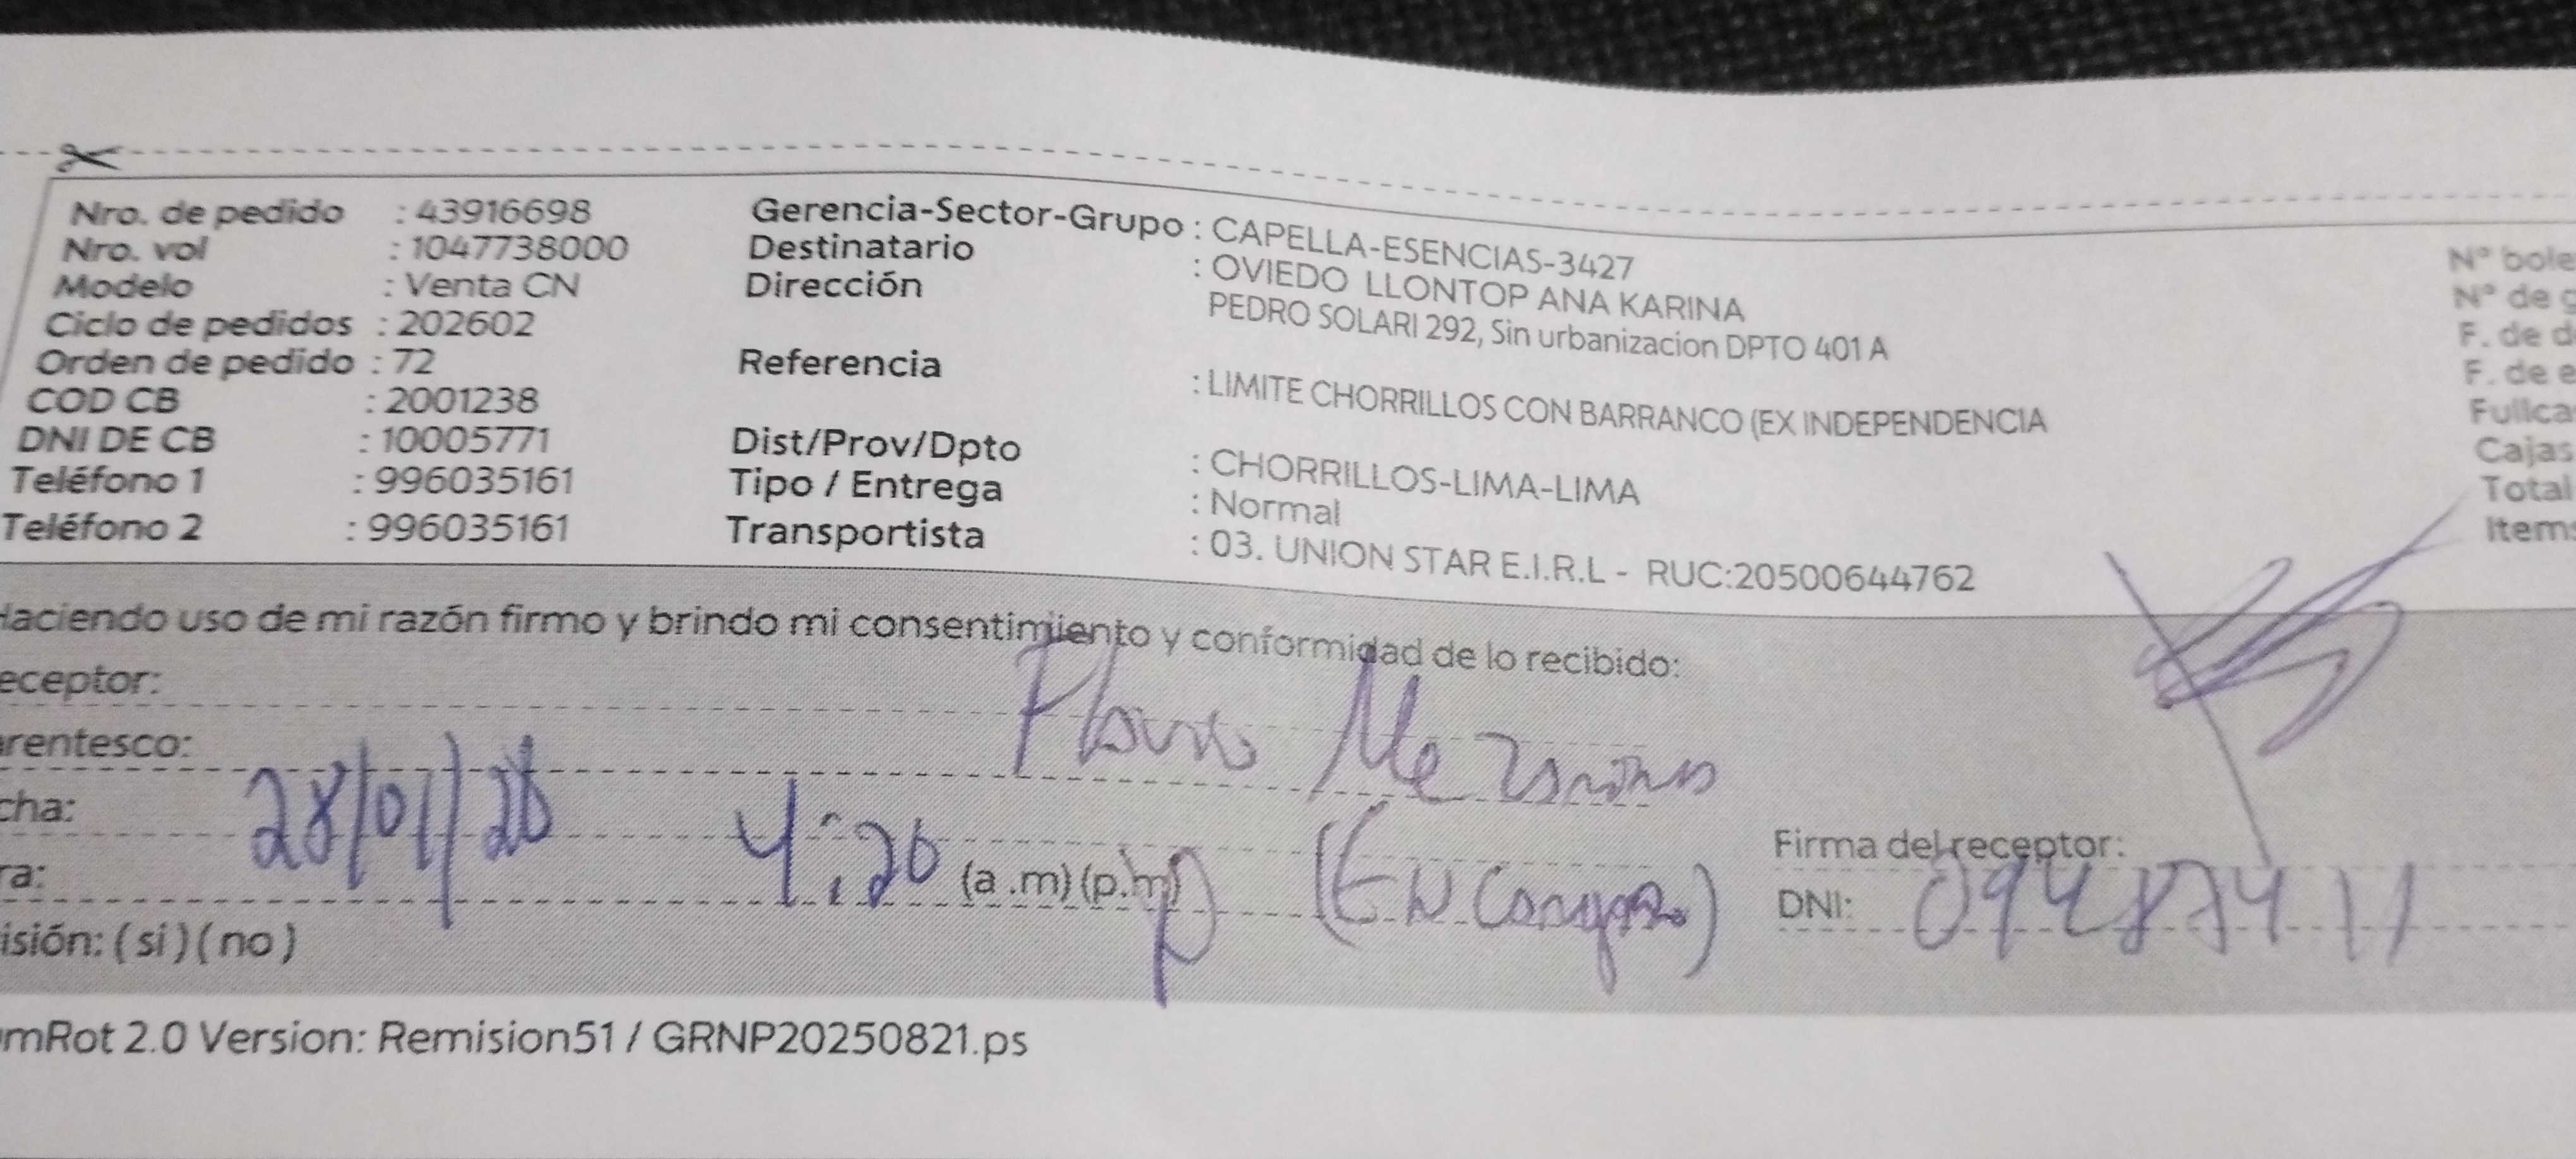 Nro. de pedido : 43916698
Nro. vol : 1047738000
Modelo : Venta CN
Ciclo de pedidos : 202602
Orden de pedido : 72
COD CB : 2001238
DNI DE CB : 10005771
Teléfono 1 : 996035161
Teléfono 2 : 996035161
Gerencia-Sector-Grupo : CAPELLA-ESENCIAS-3427
Destinatario : OVIEDO LLONTOP ANA KARINA
Dirección PEDRO SOLARI 292, Sin urbanizacion DPTO 401 A
Referencia : LIMITE CHORRILLOS CON BARRANCO (EX INDEPENDENCIA
Dist/Prov/Dpto : CHORRILLOS-LIMA-LIMA
Tipo / Entrega : Normal
Transportista : 03. UNION STAR E.I.R.L - RUC:20500644762
N° bole
N° de g
F. de d
F. de e
Fullca
Cajas
Total
Items
Haciendo uso de mi razón firmo y brindo mi consentimiento y conformidad de lo recibido:
eceptor:
arentesco:
cha: 28/01/26
ra: 4:20 (a .m) (p.m)
isión: ( si ) ( no )
Firma del receptor:
DNI:
mRot 2.0 Version: Remision51 / GRNP20250821.ps